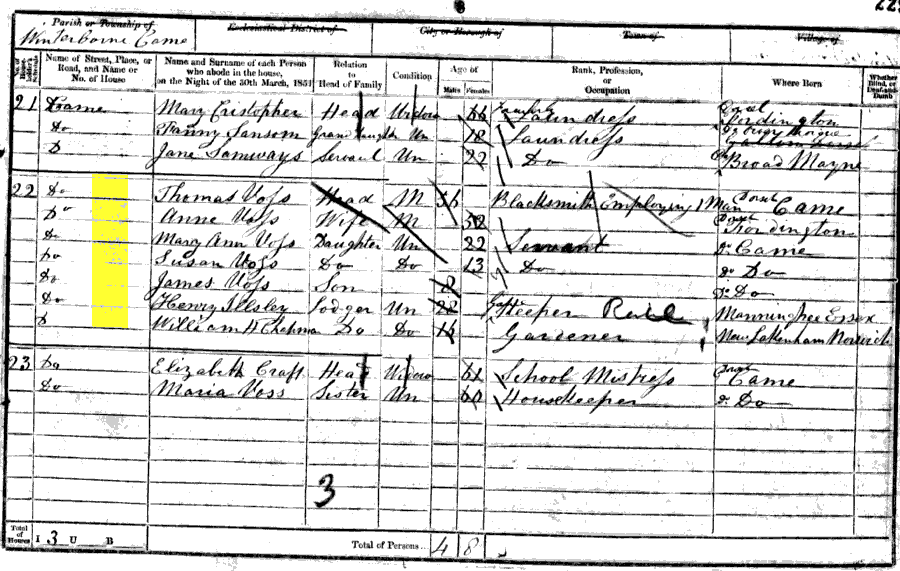 Parish or Township of Ecclesiastical District of City or Borough of Town of Village of
Winterborne Came
Name of Street, Place, or Road, and Name or No. of House
Name and Surname of each Person who abode in the house, on the Night of the 30th March, 1851
Relation to Head of Family
Condition
Age of Males Females
Rank, Profession, or Occupation
Where Born
Whether Blind, or Deaf-and-Dumb
21 Came Mary Cristopher Head Widow Laundress Dorset Fordington
Do Fanny Sansom Grand Daughter Un 18 Laundress
D Jane Samways Servant Un 22 Do Do Broad Mayne
22 Do Thomas Voss Head M Blacksmith Employing 1 Man Dorset Came
Do Anne Voss Wife M 52 Dorset Fordington
Do Mary Ann Voss Daughter Un 22 Servant Do Came
Do Susan Voss Do Do 13 Do Do Do
Do James Voss Son 8 Do Do
Do Henry Ilsley Lodger Un 22 Keeper Manningtree Essex
D William H Do Do Gardener New Lakenham Norwich
23 Do Elizabeth Craft Head Widow 61 School Mistress Dorset Came
Do Maria Voss Sister Un 60 Housekeeper Do Do
3
Total of Houses I 3 U B Total of Persons 4 8